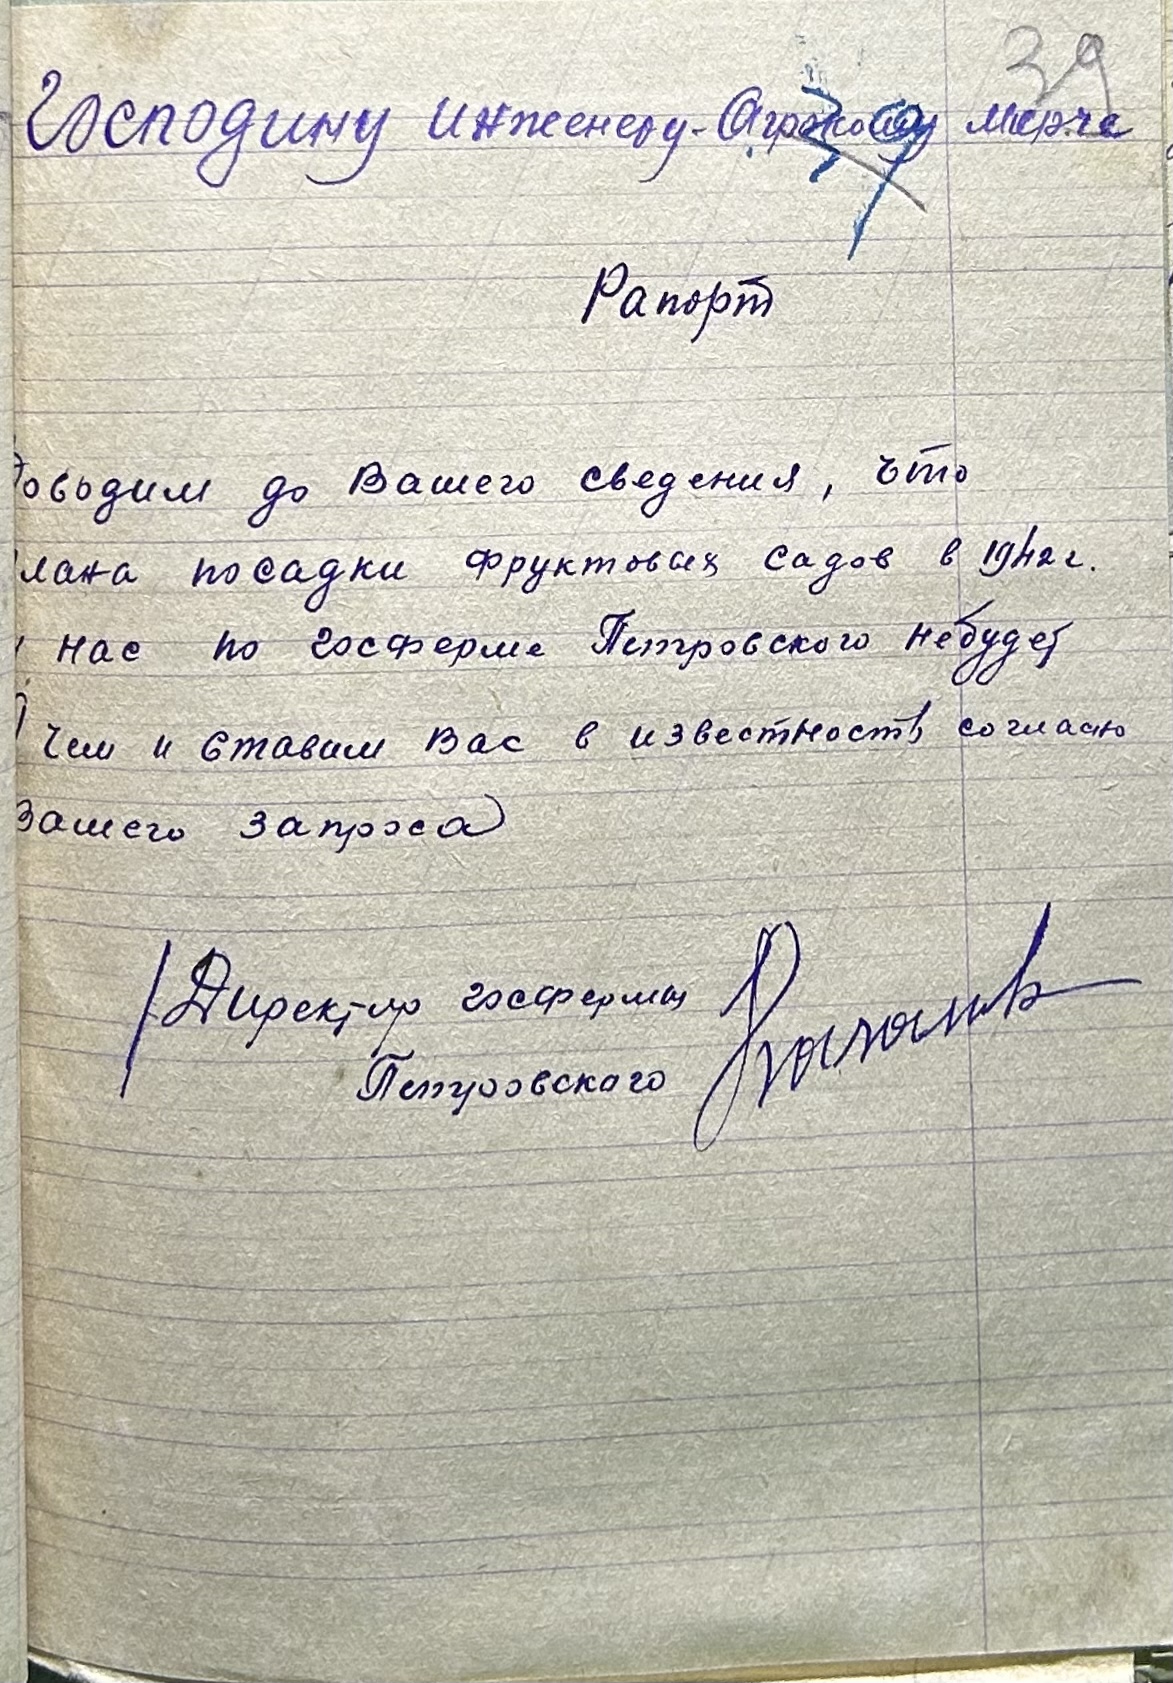 39
Господину инженеру-Агроному Мерче
39
Рапорт
Доводим до Вашего сведения, что
плана посадки фруктовых садов в 1942 г.
у нас по госферме Петровского небудет
О чем и ставим Вас в известность согласно
Вашего запроса
Директор госфермы
Петровского